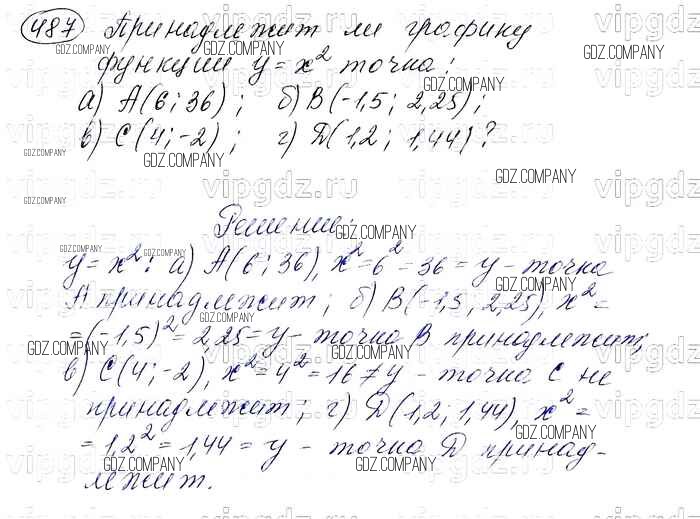 487 Принадлежит ли графику
функции y = x² точка:
а) A(6; 36); б) B(-1,5; 2,25);
в) C(4; -2); г) D(1,2; 1,44)?
Решение:
y = x²: а) A(6; 36), x² = 6² = 36 = y - точка
A принадлежит; б) B(-1,5, 2,25), x² =
= (-1,5)² = 2,25 = y - точка B принадлежит;
в) C(4; -2), x² = 4² = 16 ≠ y - точка C не
принадлежит; г) D(1,2; 1,44), x² =
= 1,2² = 1,44 = y - точка D принад-
лежит.